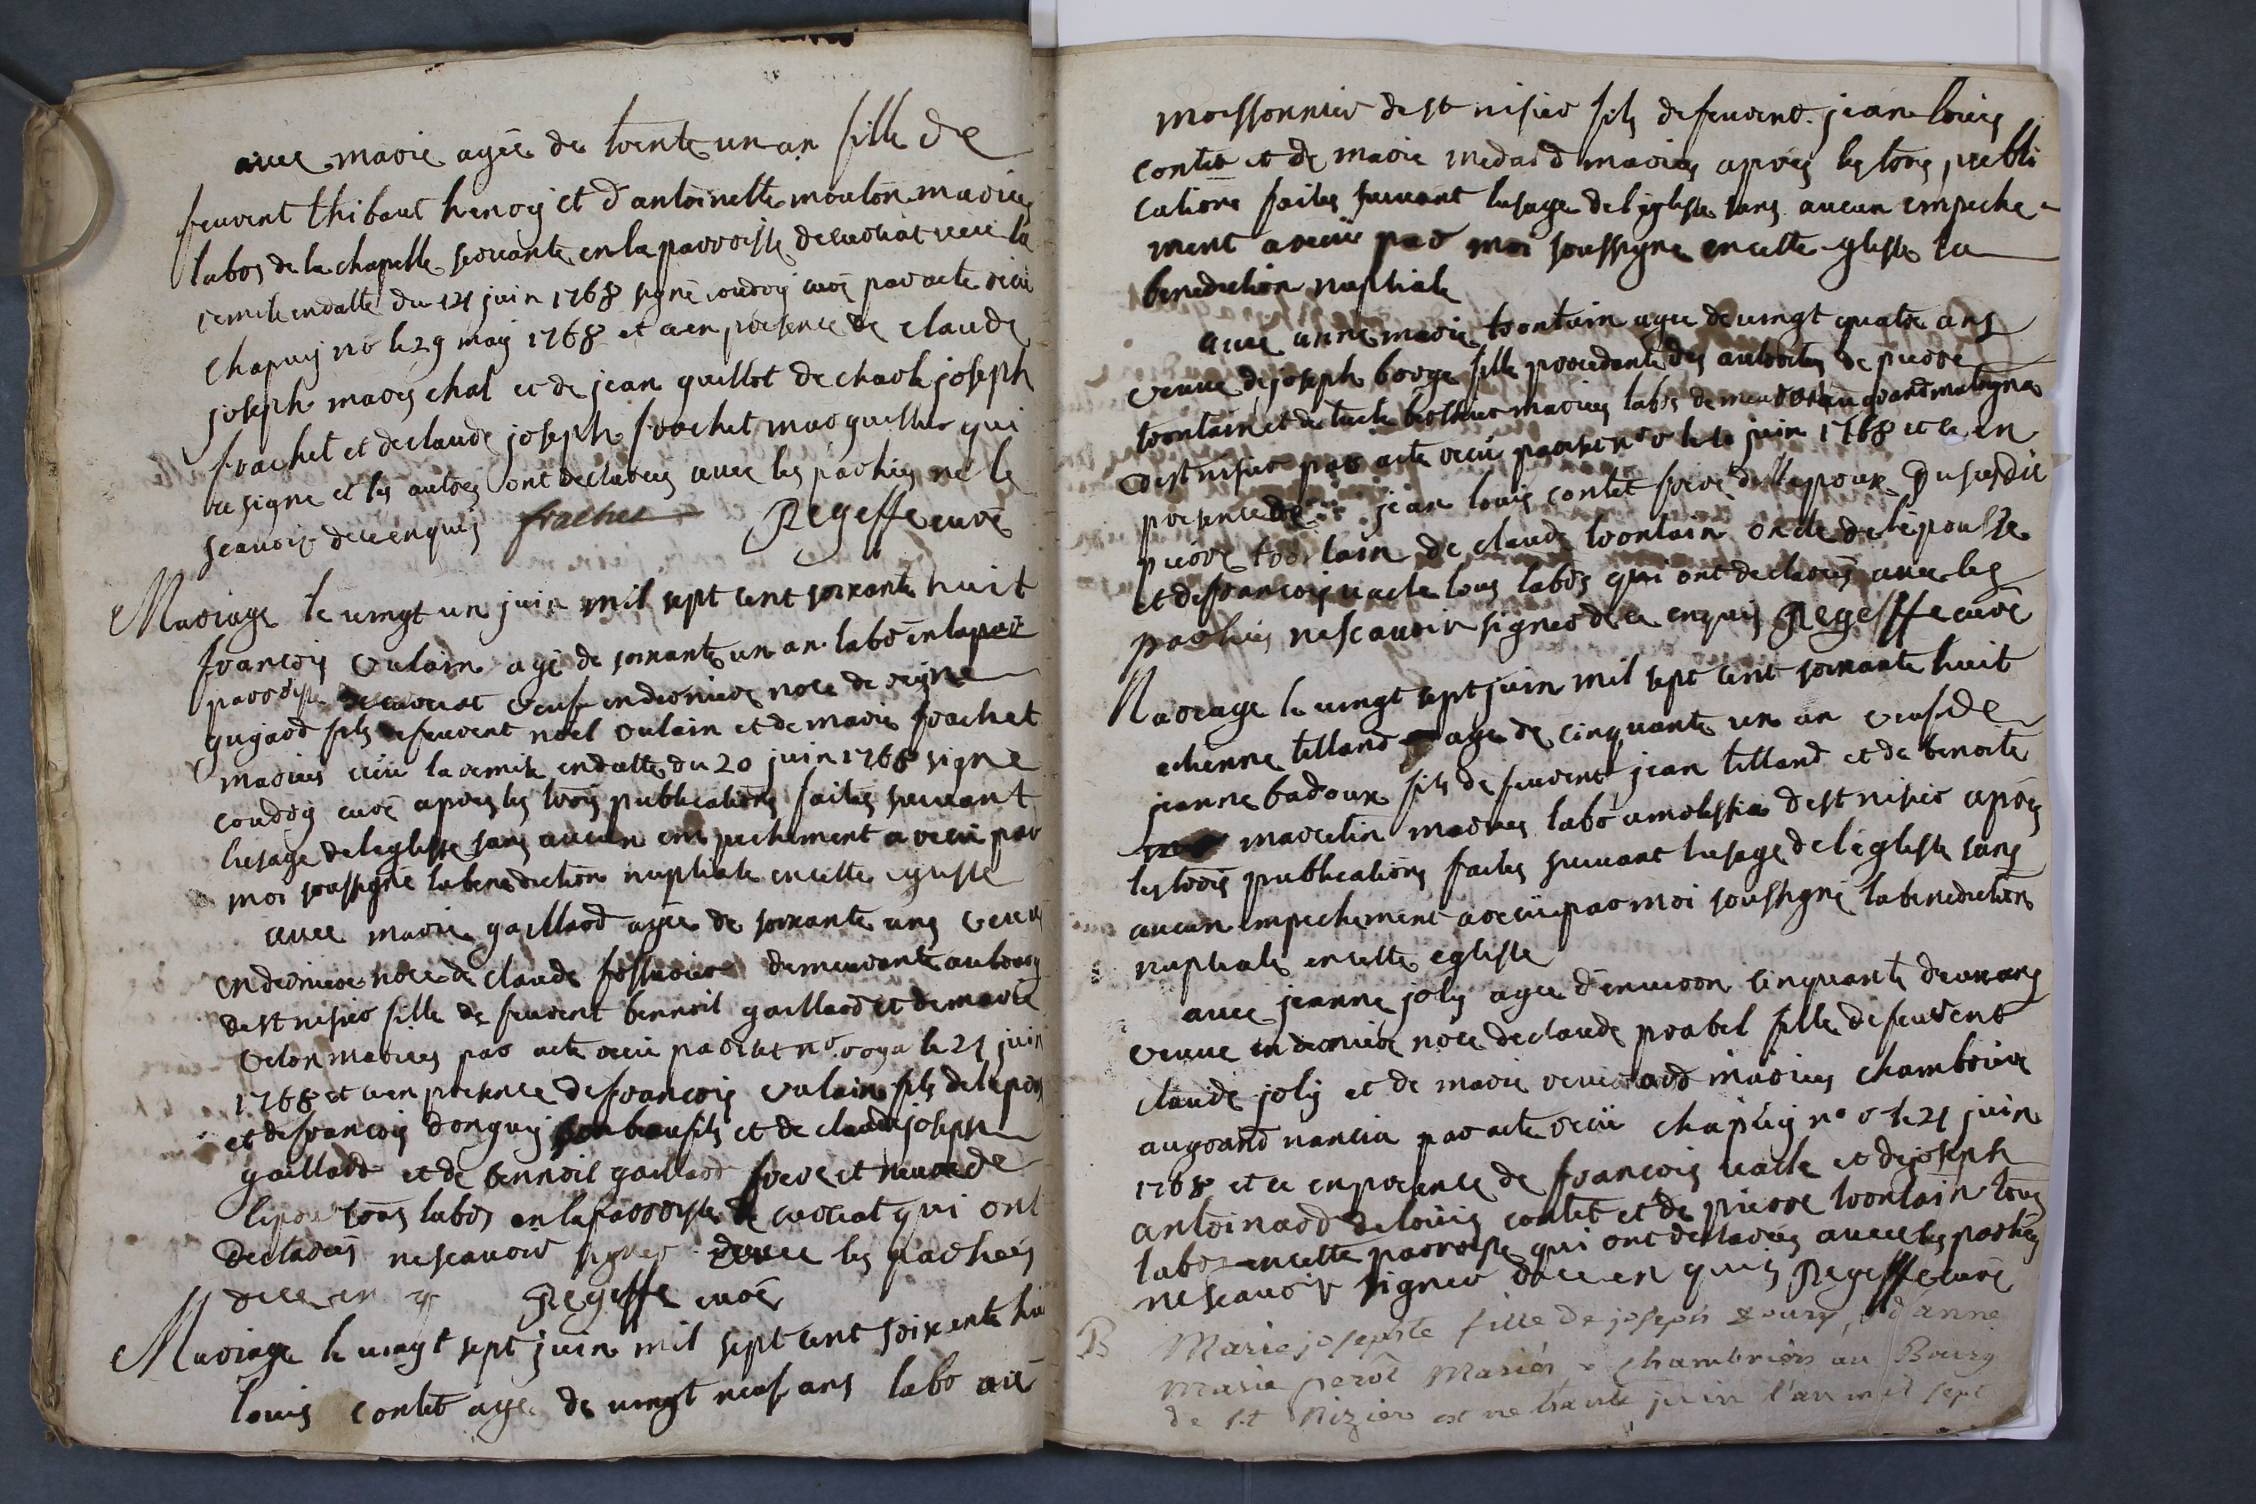 avec marie agée de trente un an fille de
feuvent thibaut henoy et d'antoinette mouton mariés
labos de la chapelle servante en la parroisse de curciat vecu la
remise en datte du 21 juin 1768 signé coudoy curé par acte recu
chapuy nré le 29 may 1768 et ce en presence de claude
joseph mareschal et de jean guillot de charle joseph
frachet et de claude joseph frachet marguillier qui
a signe et les autres ont declarés avec les parties ne le
scavoir de ce enquis frachet Regeffe curé
Mariage le vingt un juin mil sept cent soixante huit
francois vulain agé de soixante un an labo en la par
parroisse de curciat veuf en derniere noce de reine
gugard fils de feuvent noel vulain et de marie frachet
mariés vëu la remise en datte du 20 juin 1768 signe
coudoy curé apres les trois publications faites suivant
lusage de leglisse sans aucun empechement a recu par
moi soussigné la benediction nuptiale en cette eglisse
avec marie gaillard agée de soixante ans veuve
en derniere noce de claude demeurante au bourg
de st nisier fille de feuvent bennoit gaillard et de marie
velon mariés par acte recu par nré le 21 juin
1768 et ce en presence de francois vulain fils de lepou
et de francois donguy son beaufils et de claude joseph
gaillard et de bennoit gaillard frere et neveu de
lepou tous labos en la parroisse de curciat qui ont
declarés ne scavoir signer avec les parties
de ce en q Regeffe curé
Mariage le vingt sept juin mil sept cent soixente hui
louis contet agé de vingt neuf ans labo au
moissonnier de st nisier fils de feuvent jean louis
contet et de marie medard mariés apres les trois publi
cations faites suivant lusage de leglisse sans aucun empeche
ment a recu par moi soussigné en cette glisse la
benediction nuptiale
avec anne marie trontain agée de vingt quatre ans
veuve de joseph borge fille procedante des autorités de pierre
trontain et de mariés labos au grand matrigna
de st nisier par acte recu nré le 10 juin 1768 et ce en
presence de jean louis contet frere de lepoux du susdit
pierre trontain de claude trontain oncle de lepousse
et de francois vacle tous labos qui ont declarés avec les
parties ne scavoir signer de ce enquis Regeffe curé
Mariage le vingt sept juin mil sept cent soixante huit
etienne tilland agé de cinquante un an veuf de
jeanne badoux fils de feuvent jean tilland et de benoite
marcelin mariés labo a de st nisier apres
les trois publications faites suivant lusage de léglisse sans
aucun empechement a recu par moi soussigné la benediction
nuptiale en cette eglisse
avec jeanne joly agée d'environ cinquante deux ans
veuve en derniere noce de claude prabel fille de feuvent
claude joly et de marie mariés chambriere
au grand nancia par acte recu chapuy nré le 21 juin
1768 et ce en presence de francois vacle et de joseph
antoinard de louis contet et de pierre trontain tous
labos en cette parroisse qui ont declarés avec les parties
ne scavoir signer de ce en quis Regeffe curé
B Marie josephte fille de joseph et d'anne
Marie perot Mariés chambriers au Bourg
de St Nizier est né trante juin l'an mil sept